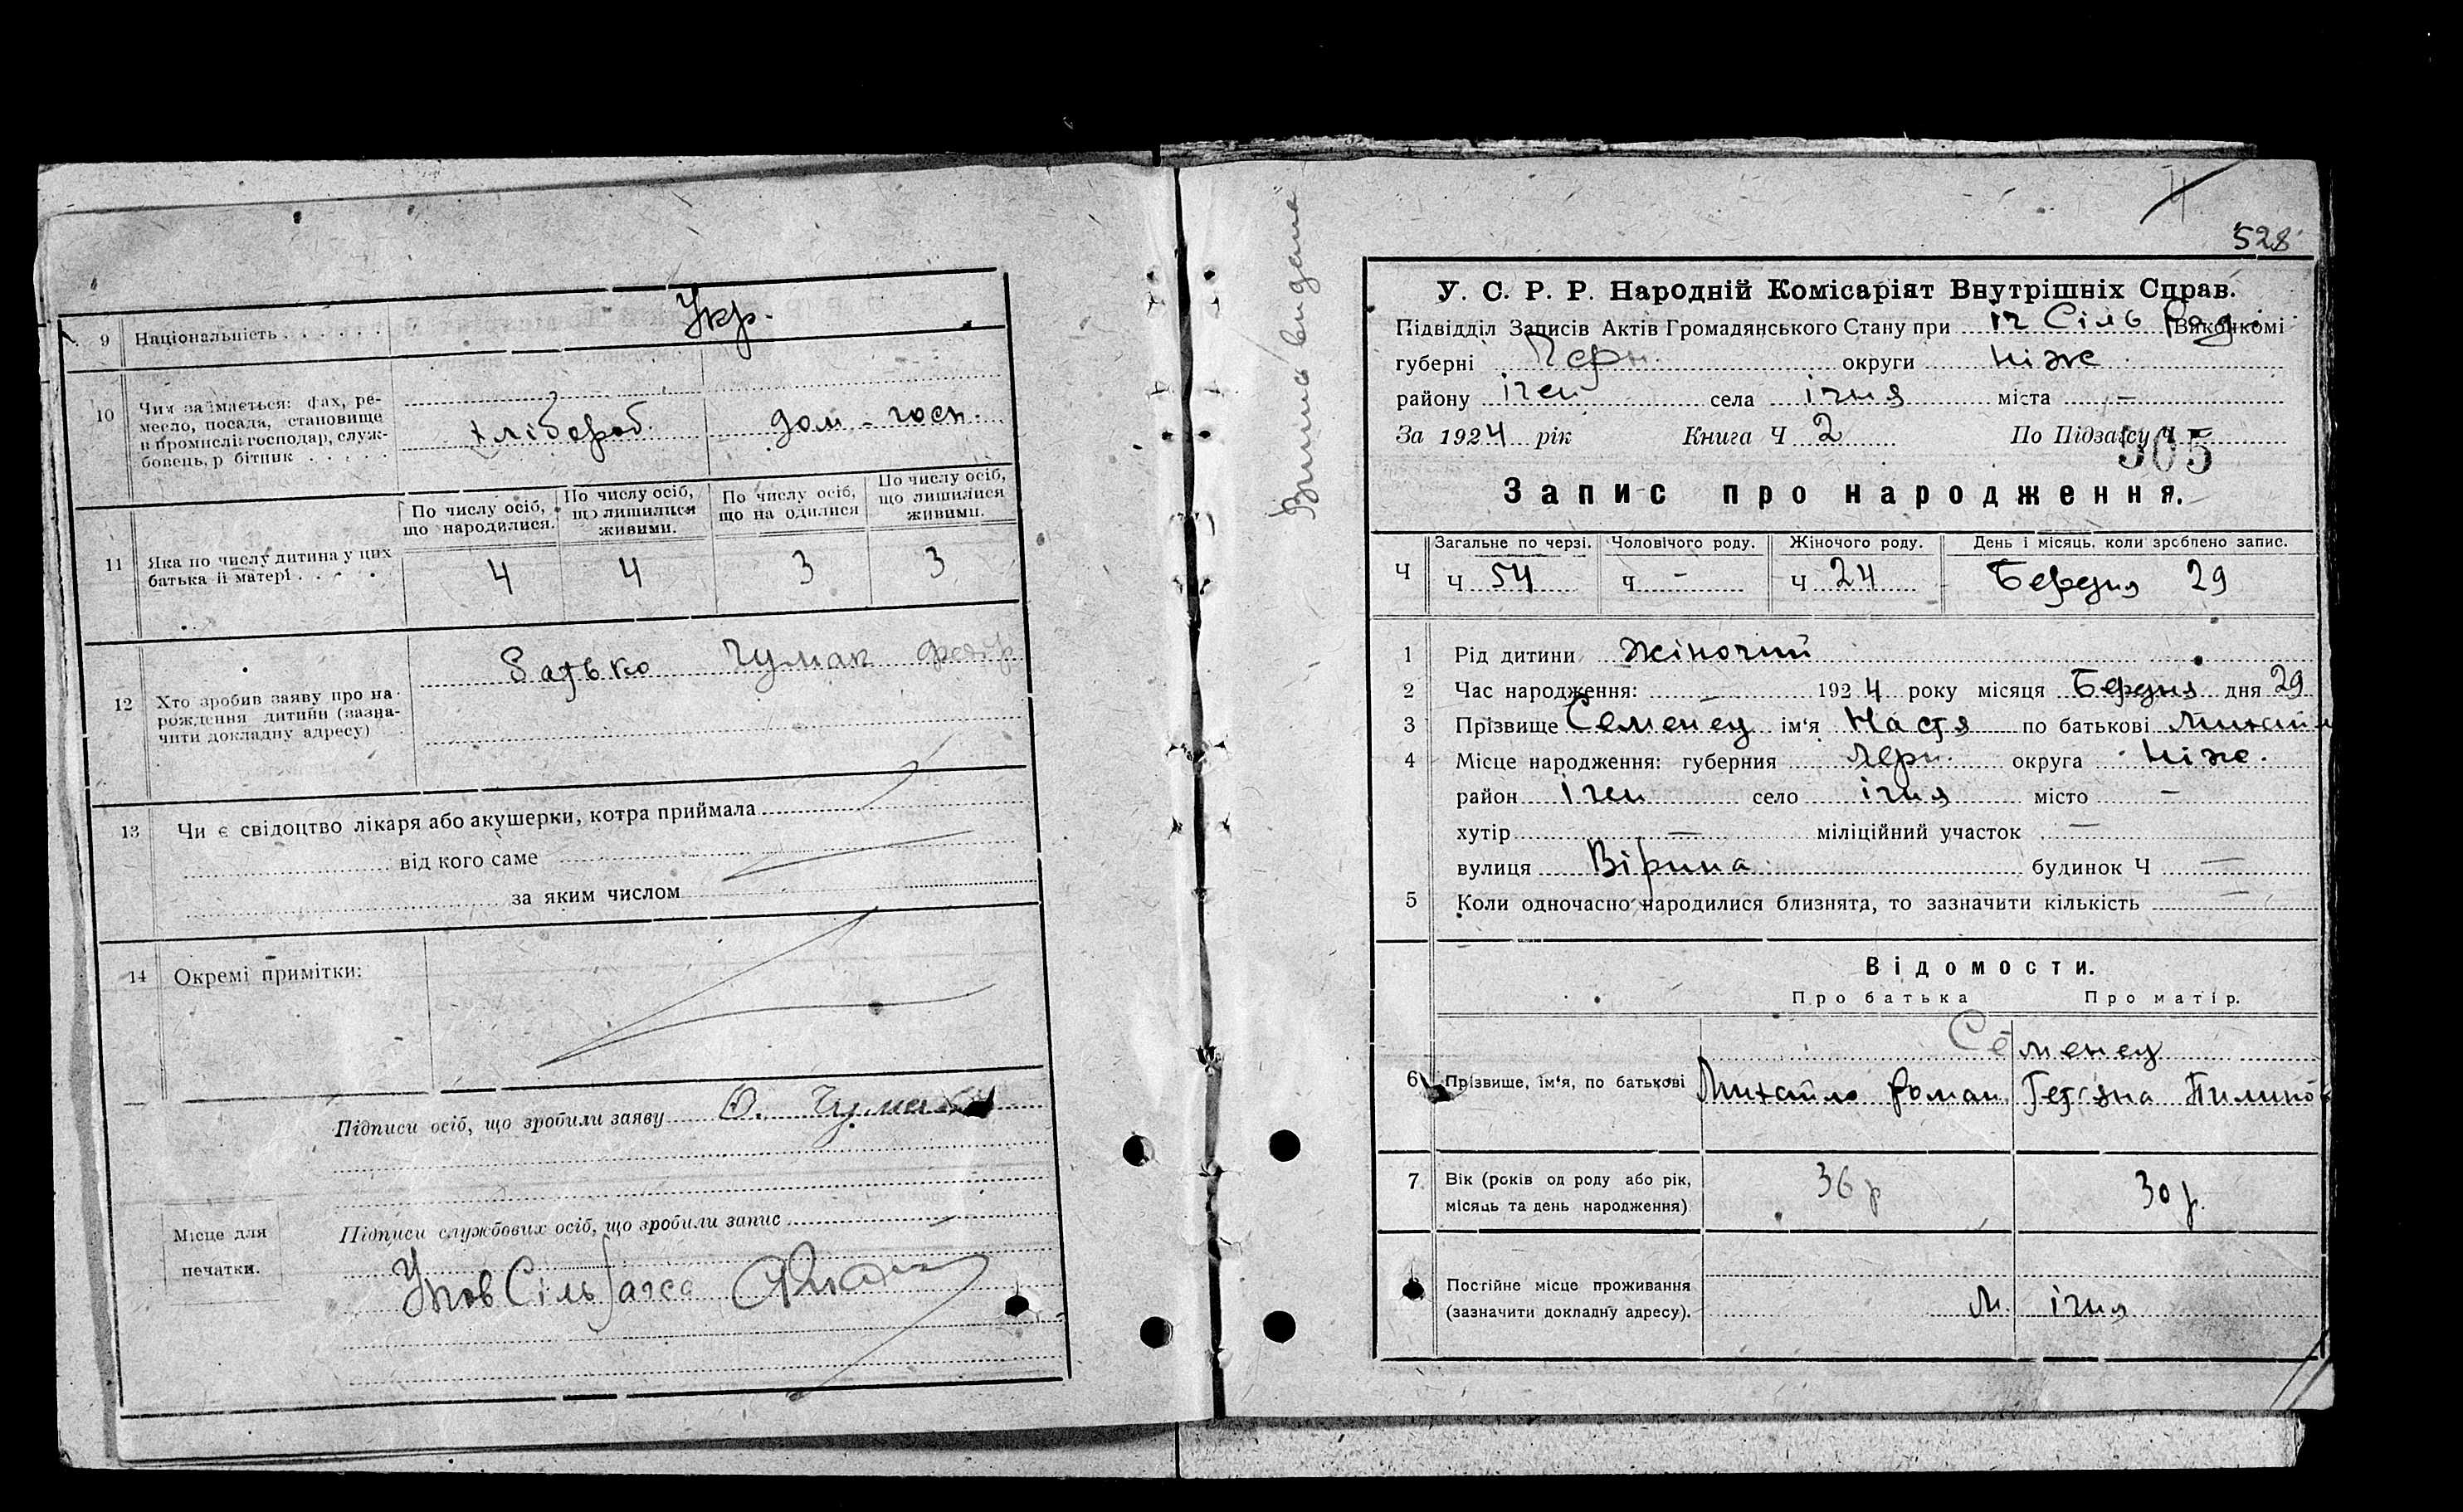 9 Національність . . . . . Укр.
10 Чим займається: фах, ре-
месло, посада, становище
в промислі: господар, служ-
бовець, р бітник . . . . .
хлібороб. дом-госп.
По числу осіб, що народилися. По числу осіб, що лишилися живими. По числу осіб, що на одилися По числу осіб, що лишилися живими.
11 Яка по числу дитина у цих
батька ії матері . . . . 4 4 3 3
12 Хто зробив заяву про на-
рождення дитини (зазна-
чити докладну адресу)
батько Чумак Федір
13 Чи є свідоцтво лікаря або акушерки, котра приймала
від кого саме
за яким числом
14 Окремі примітки:
Підписи осіб, що зробили заяву Ф. Чумак
Місце для
печатки.
Підписи службових осіб, що зробили запис
Випись видана
528
У. С. Р. Р. Народній Комісаріят Внутрішніх Справ.
Підвідділ Записів Актів Громадянського Стану при Іч Сіль Рад. Виконкомі
губерні Черн. округи Ніже
району Ічен села Ічня міста —
За 1924 рік Книга Ч 2 По Підзапису Ч
505
Запис про народження.
Ч Загальне по черзі. Чоловічого роду. Жіночого роду. День і місяць, коли зроблено запис.
Ч 54 Ч — Ч 24 Березня 29
1 Рід дитини Жіночий
2 Час народження: — 1924 року місяця Березня дня 29
3 Прізвище Семенец ім'я Настя по батькові Михайл
4 Місце народження: губерния Черн. округа Ніже.
район Ічен село Ічня місто —
хутір — міліційний участок —
вулиця будинок Ч —
5 Коли одночасно народилися близнята, то зазначити кількість —
Відомости.
Про батька Про матір.
Семенец
6 Прізвище, ім'я, по батькові Михайло Роман. Тет'яна Пилипо
7 Вік (років од роду або рік,
місяць та день народження) 36 р 30 р.
Постійне місце проживання
(зазначити докладну адресу). М. Ічня